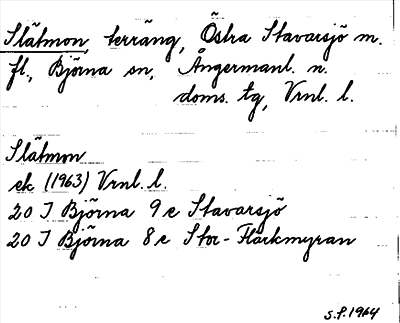 Slåtmon, terräng, Östra Stavarsjö m.
fl., Björna sn, Ångermanl. n.
doms. tg, Vrnl. l.
Slåtmon
ek (1963) Vrnl. l.
20 J Björna 9 e Stavarsjö
20 J Björna 8 e Stor-Flärkmyran
S.P. 1964